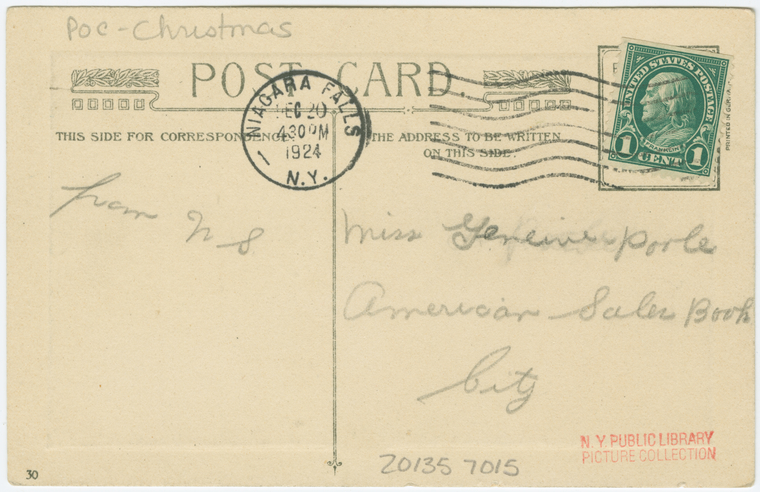 Poc-Christmas
POST CARD.
THIS SIDE FOR CORRESPONDENCE.
THE ADDRESS TO BE WRITTEN
ON THIS SIDE.
NIAGARA FALLS
DEC 20
430 PM
1924
N.Y.
1
UNITED STATES POSTAGE
FRANKLIN
1 CENT 1
from N S
Miss Genevieve Poole
American Sales Book
City
N.Y. PUBLIC LIBRARY
PICTURE COLLECTION
20135 7015
30